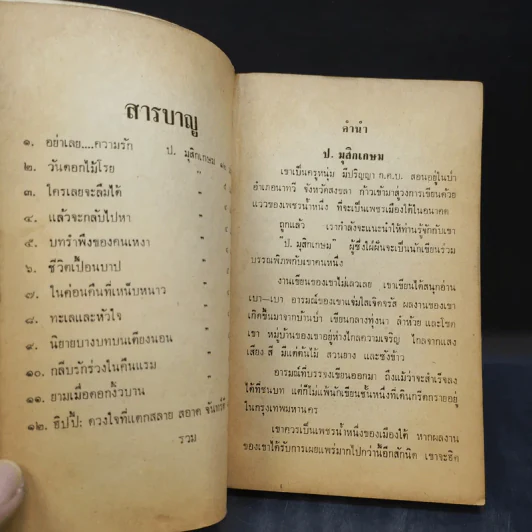 สารบาญ
๑. อย่าเลย....ความรัก ป. มุสิกเกษม
๒. วันดอกไม้โรย "
๓. ใครเลยจะลืมได้ "
๔. แล้วจะกลับไปหา "
๕. บทรำพึงของคนเหงา "
๖. ชีวิตเปื้อนบาป "
๗. ในค่อนคืนที่เหน็บหนาว "
๘. ทะเลและหัวใจ "
๙. นิยายบางบทบนเตียงนอน "
๑๐. กลีบรักร่วงในคืนแรม "
๑๑. ยามเมื่อดอกงิ้วบาน "
๑๒. ฮิปปี้: ดวงใจที่แตกสลาย สอาด
รวม
คำนำ
ป. มุสิกเกษม
เขาเป็นครูหนุ่ม มีปริญญา ก.ศ.บ. สอนอยู่ในป่า
อำเภอนาทวี จังหวัดสงขลา ก้าวเข้ามาสู่วงการเขียนด้วย
แววของเพชรน้ำหนึ่ง ที่จะเป็นเพชรเมืองใต้ในอนาคต
ถูกแล้ว เรากำลังจะแนะนำให้ท่านรู้จักกับเขา
"ป. มุสิกเกษม" ผู้ซึ่งใฝ่ฝันจะเป็นนักเขียนร่วม
บรรณพิภพกับเขาคนหนึ่ง
งานเขียนของเขาไม่เลวเลย เขาเขียนได้สนุกอ่าน
เบา—เบา อารมณ์ของเขาแจ่มใสเจิดจรัส ผลงานของเขา
เกิดขึ้นมาจากบ้านป่า เขียนกลางทุ่งนา ลำห้วย และโขด
เขา หมู่บ้านของเขาอยู่ห่างไกลความเจริญ ไกลจากแสง
เสียง สี มีแค่ต้นไม้ สวนยาง และซังข้าว
อารมณ์ที่บรรจงเขียนออกมา ถึงแม้ว่าจะสำเร็จลง
ได้ที่ชนบท แต่ก็ไม่แพ้นักเขียนชั้นหนึ่งที่เดินกรีดกรายอยู่
ในกรุงเทพมหานคร
เขาควรเป็นเพชรน้ำหนึ่งของเมืองใต้ หากผลงาน
ของเขาได้รับการเผยแพร่มากไปกว่านี้อีกสักนิด เขาจะยึด